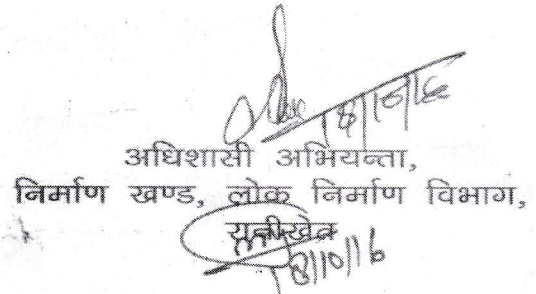 18/10/16
अधिशासी अभियन्ता,
निर्माण खण्ड, लोक निर्माण विभाग,
रानीखेत
18/10/16